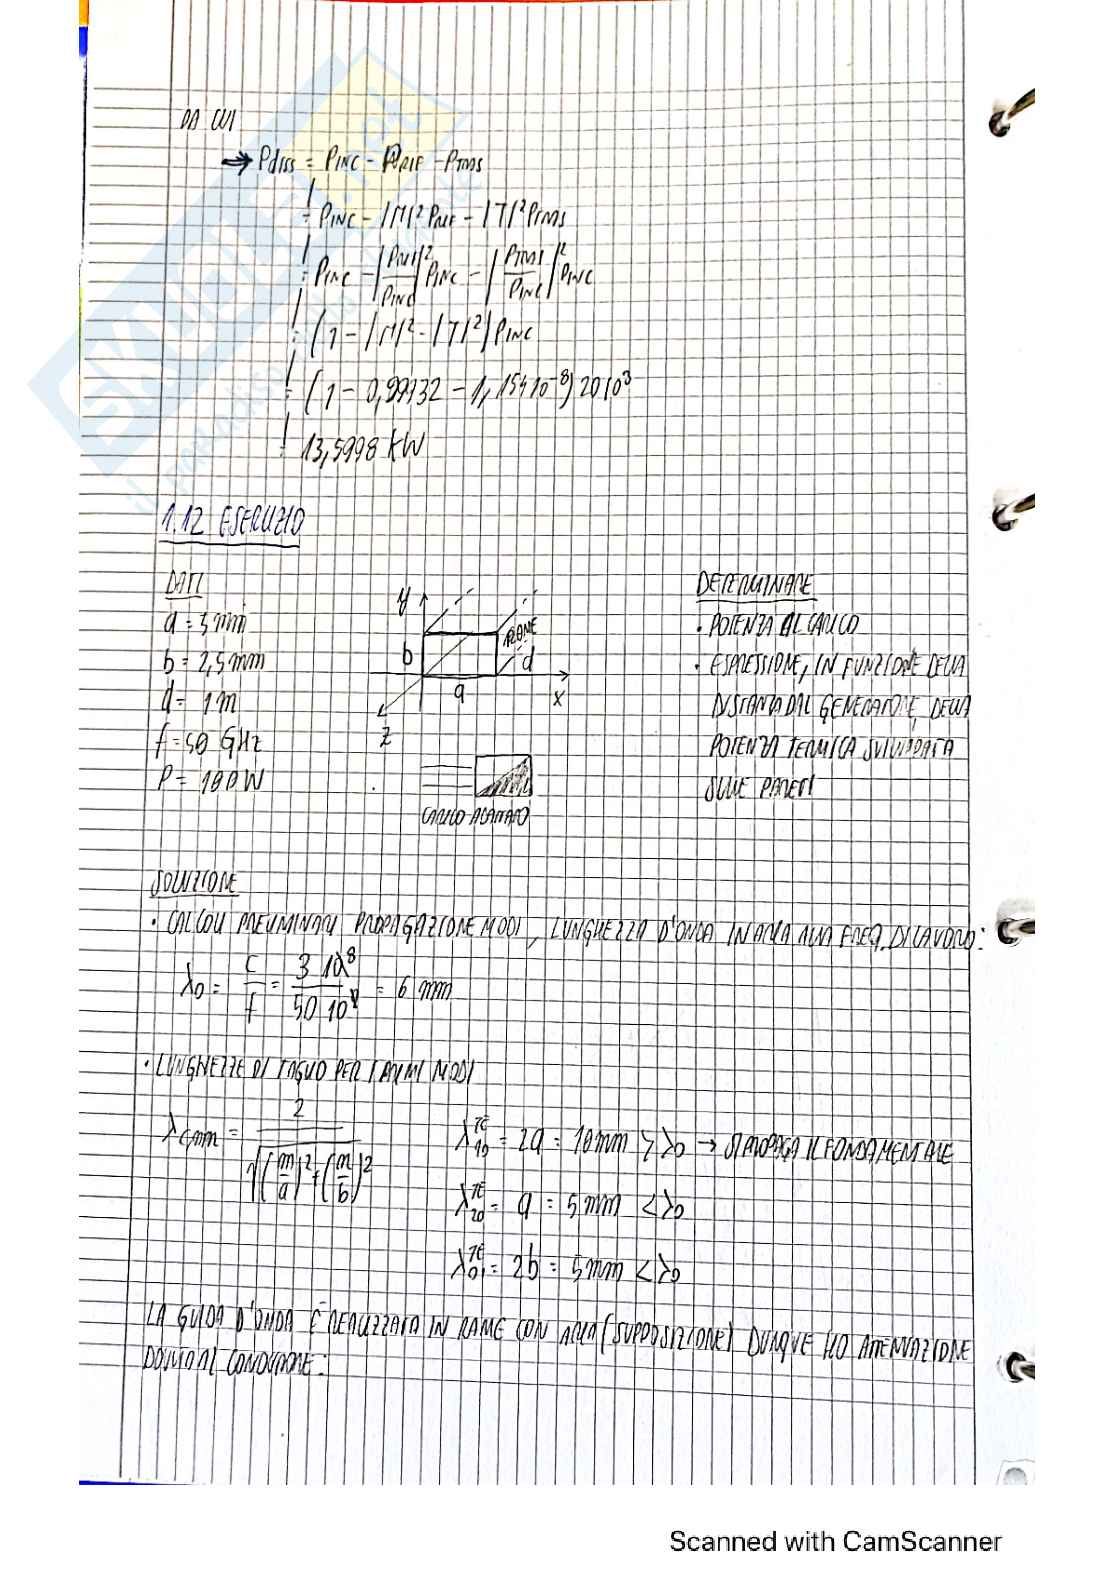 DA CUI
⇒ Pdiss = PINC - PRIF - PTMS
= PINC - |Γ|² PRIF - |T|² PTMS
= PINC - |PRIF/PINC|² PINC - |PTMS/PINC|² PINC
= (1 - |Γ|² - |T|²) PINC
= (1 - 0,99132 - 1,154 10⁻⁸) 20 10³
= 13,5998 KW
1.12 ESERCIZIO
DATI
a = 5 mm
b = 2,5 mm
d = 1 m
f = 50 GHz
P = 100 W
y
b
a
RAME
d
x
z
CARICO ADATTATO
DETERMINARE
• POTENZA AL CARICO
• ESPRESSIONE, IN FUNZIONE DELLA
DISTANZA DAL GENERATORE, DELLA
POTENZA TERMICA SVILUPPATA
SULLE PARETI
SOLUZIONE
• CALCOLI PRELIMINARI PROPAGAZIONE MODI, LUNGHEZZA D'ONDA IN ARIA ALLA FREQ. DI LAVORO:
λ0 = c/f = 3 10⁸/50 10⁹ = 6 mm
• LUNGHEZZE DI TAGLIO PER I PRIMI MODI
λcmn = 2/√((m/a)² + (n/b)²)
λ10^TE = 2a = 10mm > λ0 → SI PROPAGA IL FONDAMENTALE
λ20^TE = a = 5mm < λ0
λ01^TE = 2b = 5mm < λ0
LA GUIDA D'ONDA È REALIZZATA IN RAME CON ARIA (SUPPOSIZIONE) DUNQUE HO ATTENUAZIONE
DOVUTA AL CONDUTTORE:
SKUOLA.net
il paradiso dello studente
Scanned with CamScanner